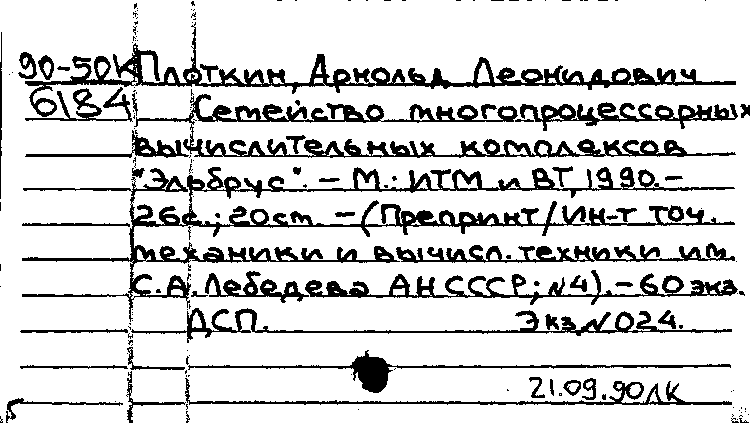 90-50К Плоткин, Арнольд Леонидович
6184 Семейство многопроцессорных
вычислительных комплексов
"Эльбрус". - М.: ИТМ и ВТ, 1990. -
26с.; 20см. - (Препринт/Ин-т точ.
механики и вычисл. техники им.
С.А. Лебедева АН СССР; №4). - 60 экз.
ДСП. Экз. №024.
21.09.90 ЛК